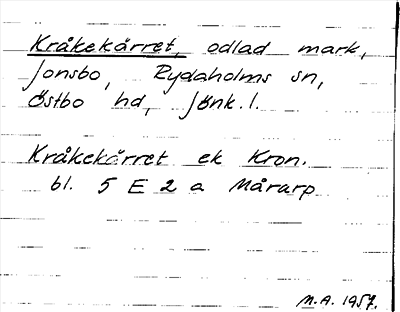 Kråkekärret, odlad mark,
Jonsbo, Rydaholms sn,
Östbo hd, Jönk. l.
Kråkekärret ek Kron.
bl. 5 E 2 a Mårarp
M.A. 1957.